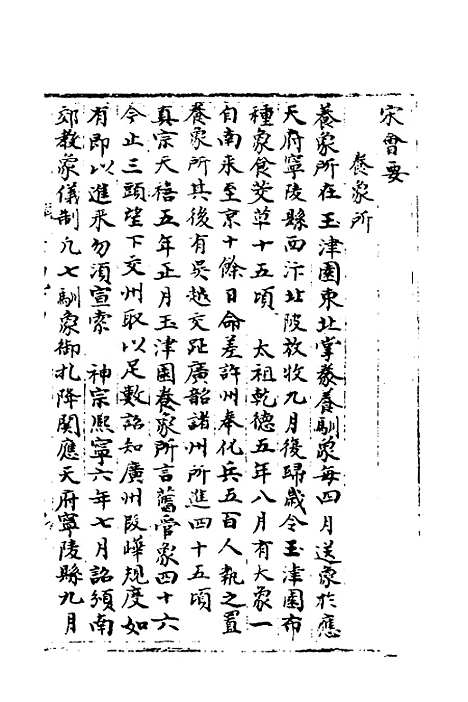 宋會要
養象所
養象所在玉津園東北掌豢養馴象每四月送象於應
天府寧陵縣西汴北陂放牧九月復歸歲令玉津園布
種象食茭草十五頃 太祖乾德五年八月有大象一
自南來至京十餘日命差許州奉化兵五百人執之置
養象所其後有吳越交趾廣韶諸州所進四十五頃
真宗天禧五年正月玉津園養象所言舊管象四十六
今止三頭望下交州取以足數詔知廣州段曄規度如
有即以進來勿須宣索 神宗熙寧六年七月詔頒南
郊教象儀制凡七馴象御札降関應天府寧陵縣九月